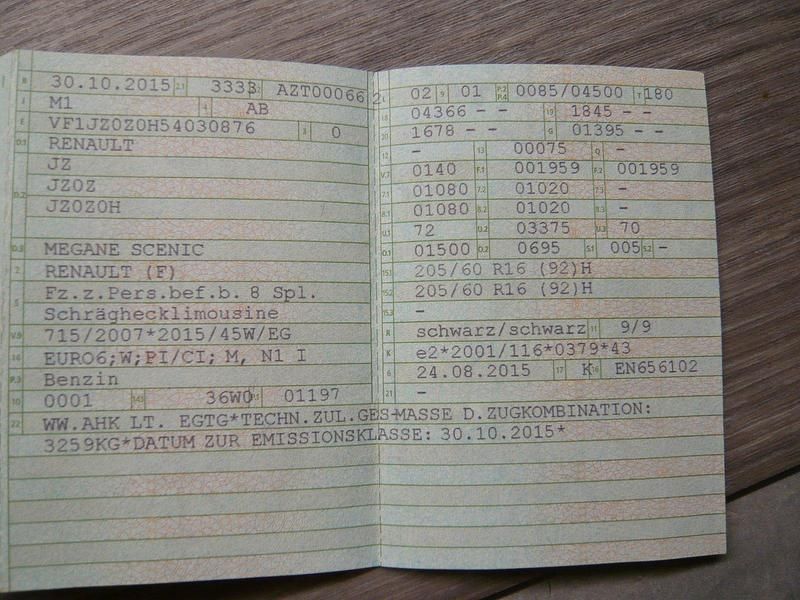 B 30.10.2015 2.1 3333 2.2 AZT00066 2
J M1 4 AB
E VF1JZ0Z0H54030876 3 0
D.1 RENAULT
JZ
D.2 JZ0Z
JZ0Z0H
D.3 MEGANE SCENIC
2 RENAULT (F)
5 Fz.z.Pers.bef.b. 8 Spl.
Schräghecklimousine
V.9 715/2007*2015/45W/EG
14 EURO6;W;PI/CI; M, N1 I
P.3 Benzin
10 0001 14.1 36W0 P.1 01197
L 02 9 01 P.2 P.4 0085/04500 T 180
18 04366 - - 19 1845 - -
20 1678 - - G 01395 - -
12 - 13 00075 Q -
V.7 0140 F.1 001959 F.2 001959
7.1 01080 7.2 01020 7.3 -
8.1 01080 8.2 01020 8.3 -
U.1 72 U.2 03375 U.3 70
O.1 01500 O.2 0695 S.1 005 S.2 -
15.1 205/60 R16 (92)H
15.2 205/60 R16 (92)H
15.3 -
R schwarz/schwarz 11 9/9
K e2*2001/116*0379*43
6 24.08.2015 17 K 16 EN656102
21 -
22 WW.AHK LT. EGTG*TECHN.ZUL.GES-MASSE D.ZUGKOMBINATION:
3259KG*DATUM ZUR EMISSIONSKLASSE: 30.10.2015*